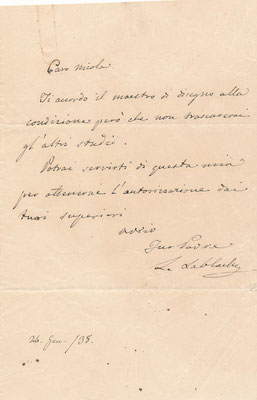 Caro Nicola
Ti acordo il maestro di disegno alla
condizione però che non trascurerai
gl'altri studii.
Potrai servirti di questa mia
per ottenerne l'autorizzazione dai
tuoi superiori
addio
Tuo Padre
L. Lablache
26. Gen. /38.